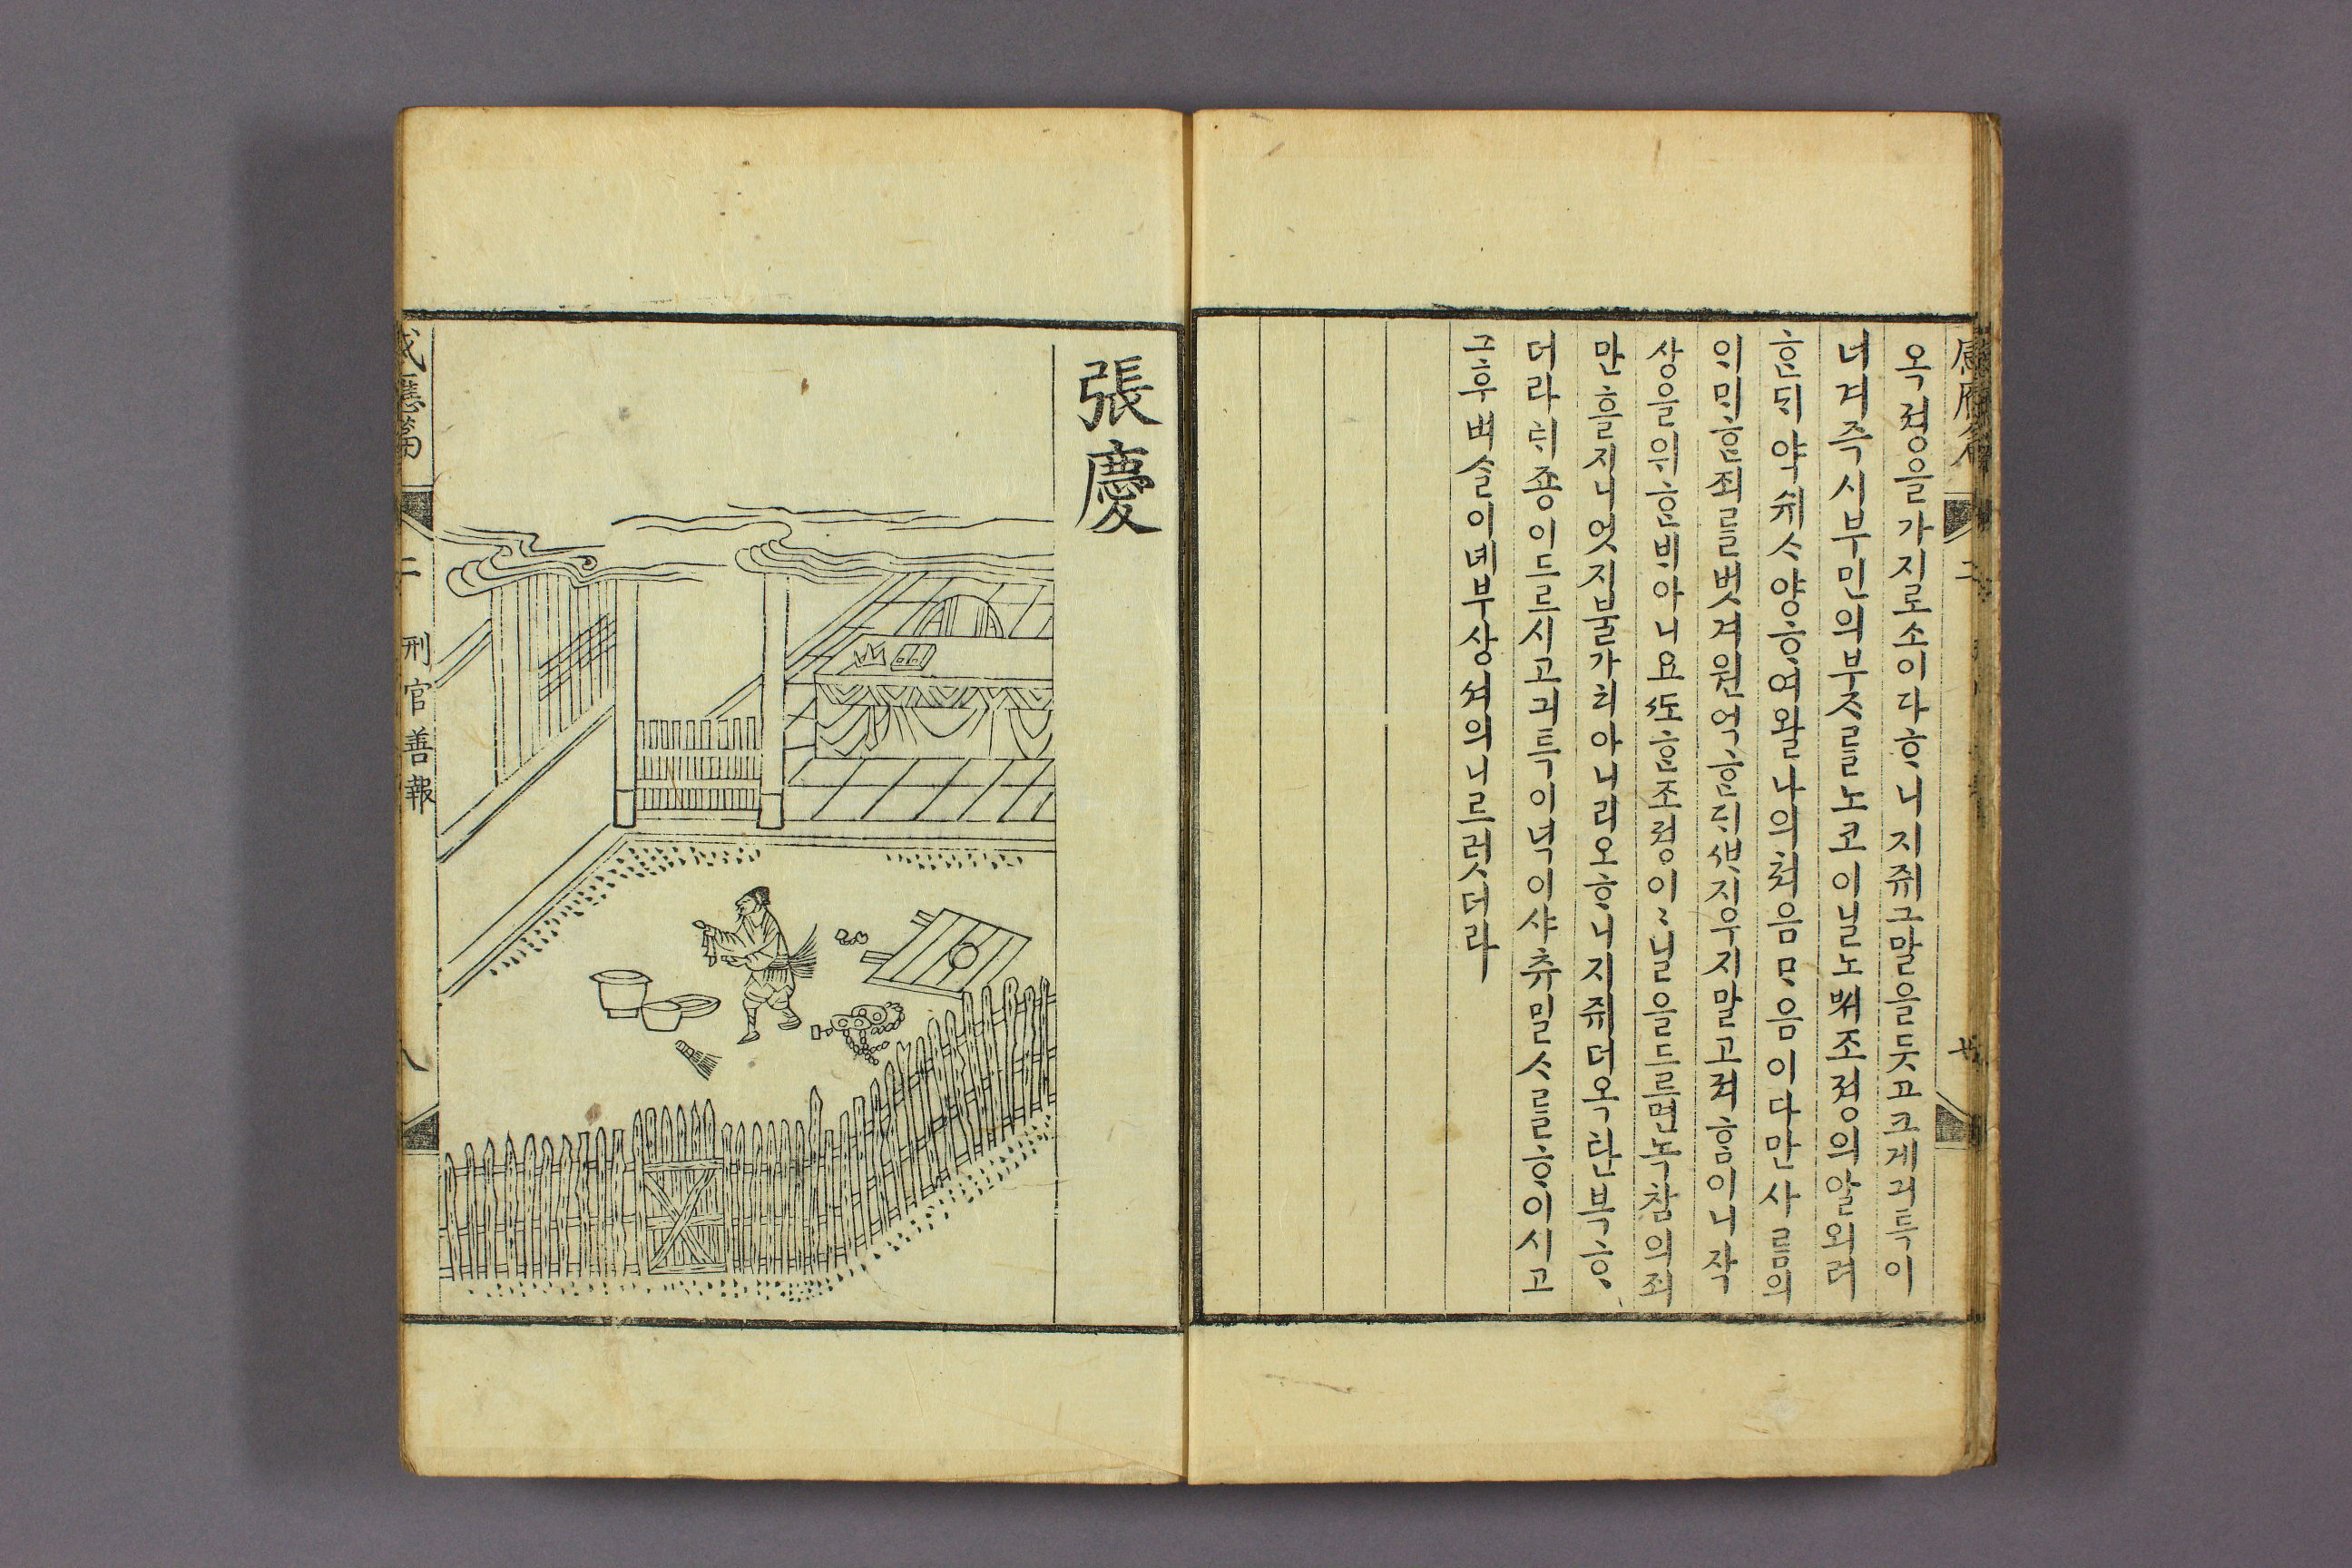 感應篇
二
옥졍을가지로소이다ᄒᆞ니지쥐그말을듯고크게긔특이
녀겨즉시부민의부ᄌᆞᄅᆞᆯ노코이닐노ᄡᅥ조졍의알외려
ᄒᆞᆫᄃᆡ약쉬ᄉᆞ양ᄒᆞ여왈나의처음ᄆᆞ음이다만사ᄅᆞᆷ의
이ᄆᆡᄒᆞᆫ죄ᄅᆞᆯ벗겨원억ᄒᆞᆫᄃᆡ ᄲᅡ지우지말고져ᄒᆞᆷ이니쟉
상을위ᄒᆞᆫᄇᆡ아니요ᄯᅩᄒᆞᆫ조졍이이닐을드르면녹참의죄
만ᄒᆞᆯ지니엇지불가치아니리오ᄒᆞ니지쥐더옥탄복ᄒᆞ
더라ᄐᆡ종이드르시고긔특이녁이샤츄밀ᄉᆞᄅᆞᆯᄒᆞ이시고
그후벼슬이녜부상셔의니르럿더라
張慶
感應篇
二
刑官善報